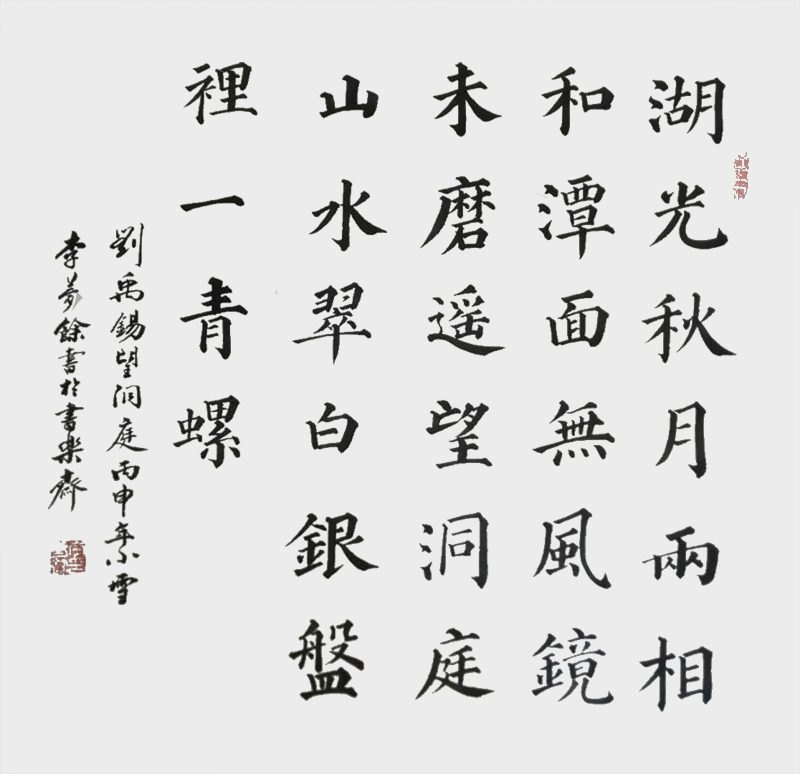 湖光秋月兩相
和潭面無風鏡
未磨遥望洞庭
山水翠白銀盤
裡一青螺
劉禹錫望洞庭丙申年小雪
李夢餘書於書樂齋